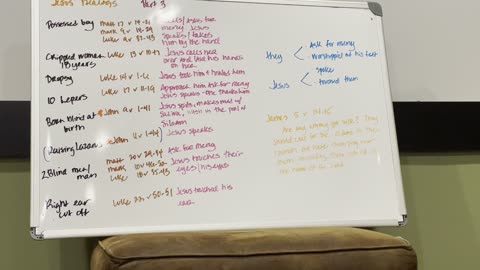 Jesus Healings Part 3
Possessed boy
Matt 17 v 14-21
Mark 9 v 14-29
Luke 9 v 37-43
Ask for
mercy Jesus
speaks / takes
him by the hand
Crippled woman
18 years
Luke 13 v 10-17
Jesus calls her
over and lays his hands
on her
Dropsy
Luke 14 v 1-6
Jesus took him + healed him
10 Lepers
Luke 17 v 11-19
Approach him Ask for mercy
Jesus speaks - one thanks him
Born blind at
birth
John 9 v 1-41
Jesus spits, makes mud w/
saliva, wash in the pool of
Siloam
(Raising Lazarus)
John 11 v 1-44
Jesus speaks
2 Blind men/
man
Matt 20 v 29-34
Mark 10 v 46-52
Luke 18 v 35-43
Ask for mercy
Jesus touches their
eyes / his eyes
Right ear
cut off
Luke 22 v 50-51
Jesus touched his
ear
they
Ask for mercy
worshipped at his feet
Jesus
Spoke
touched them
James 5 v 14-15
Are any among you sick? They
should call for the elders of the
church
the name of the Lord